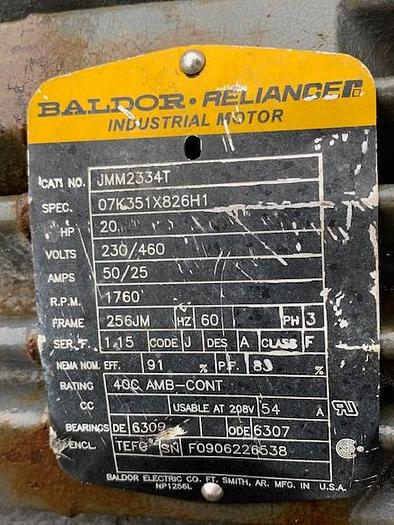 BALDOR • RELIANCER
INDUSTRIAL MOTOR
CAT. NO. JMM2334T
SPEC. 07K351X826H1
HP 20
VOLTS 230/460
AMPS 50/25
R.P.M. 1760
FRAME 256JM HZ 60 PH 3
SER. F. 1.15 CODE J DES A CLASS F
NEMA NOM. EFF. 91 % P.F. 83 %
RATING 40C AMB-CONT
CC USABLE AT 208V 54 A
BEARINGS DE 6309 ODE 6307
ENCL. TEFC SN F0906226538
BALDOR ELECTRIC CO. FT. SMITH, AR. MFG. IN U.S.A.
NP1256L